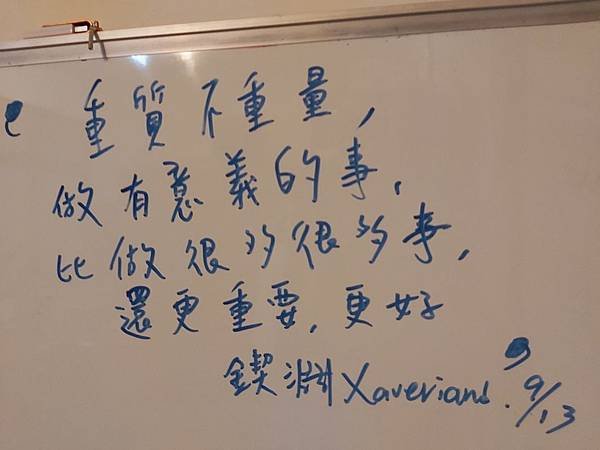 重質不重量,
做有意義的事,
比做很多很多事,
還更重要,更好
鍥淵 Xaveriand. 9/13